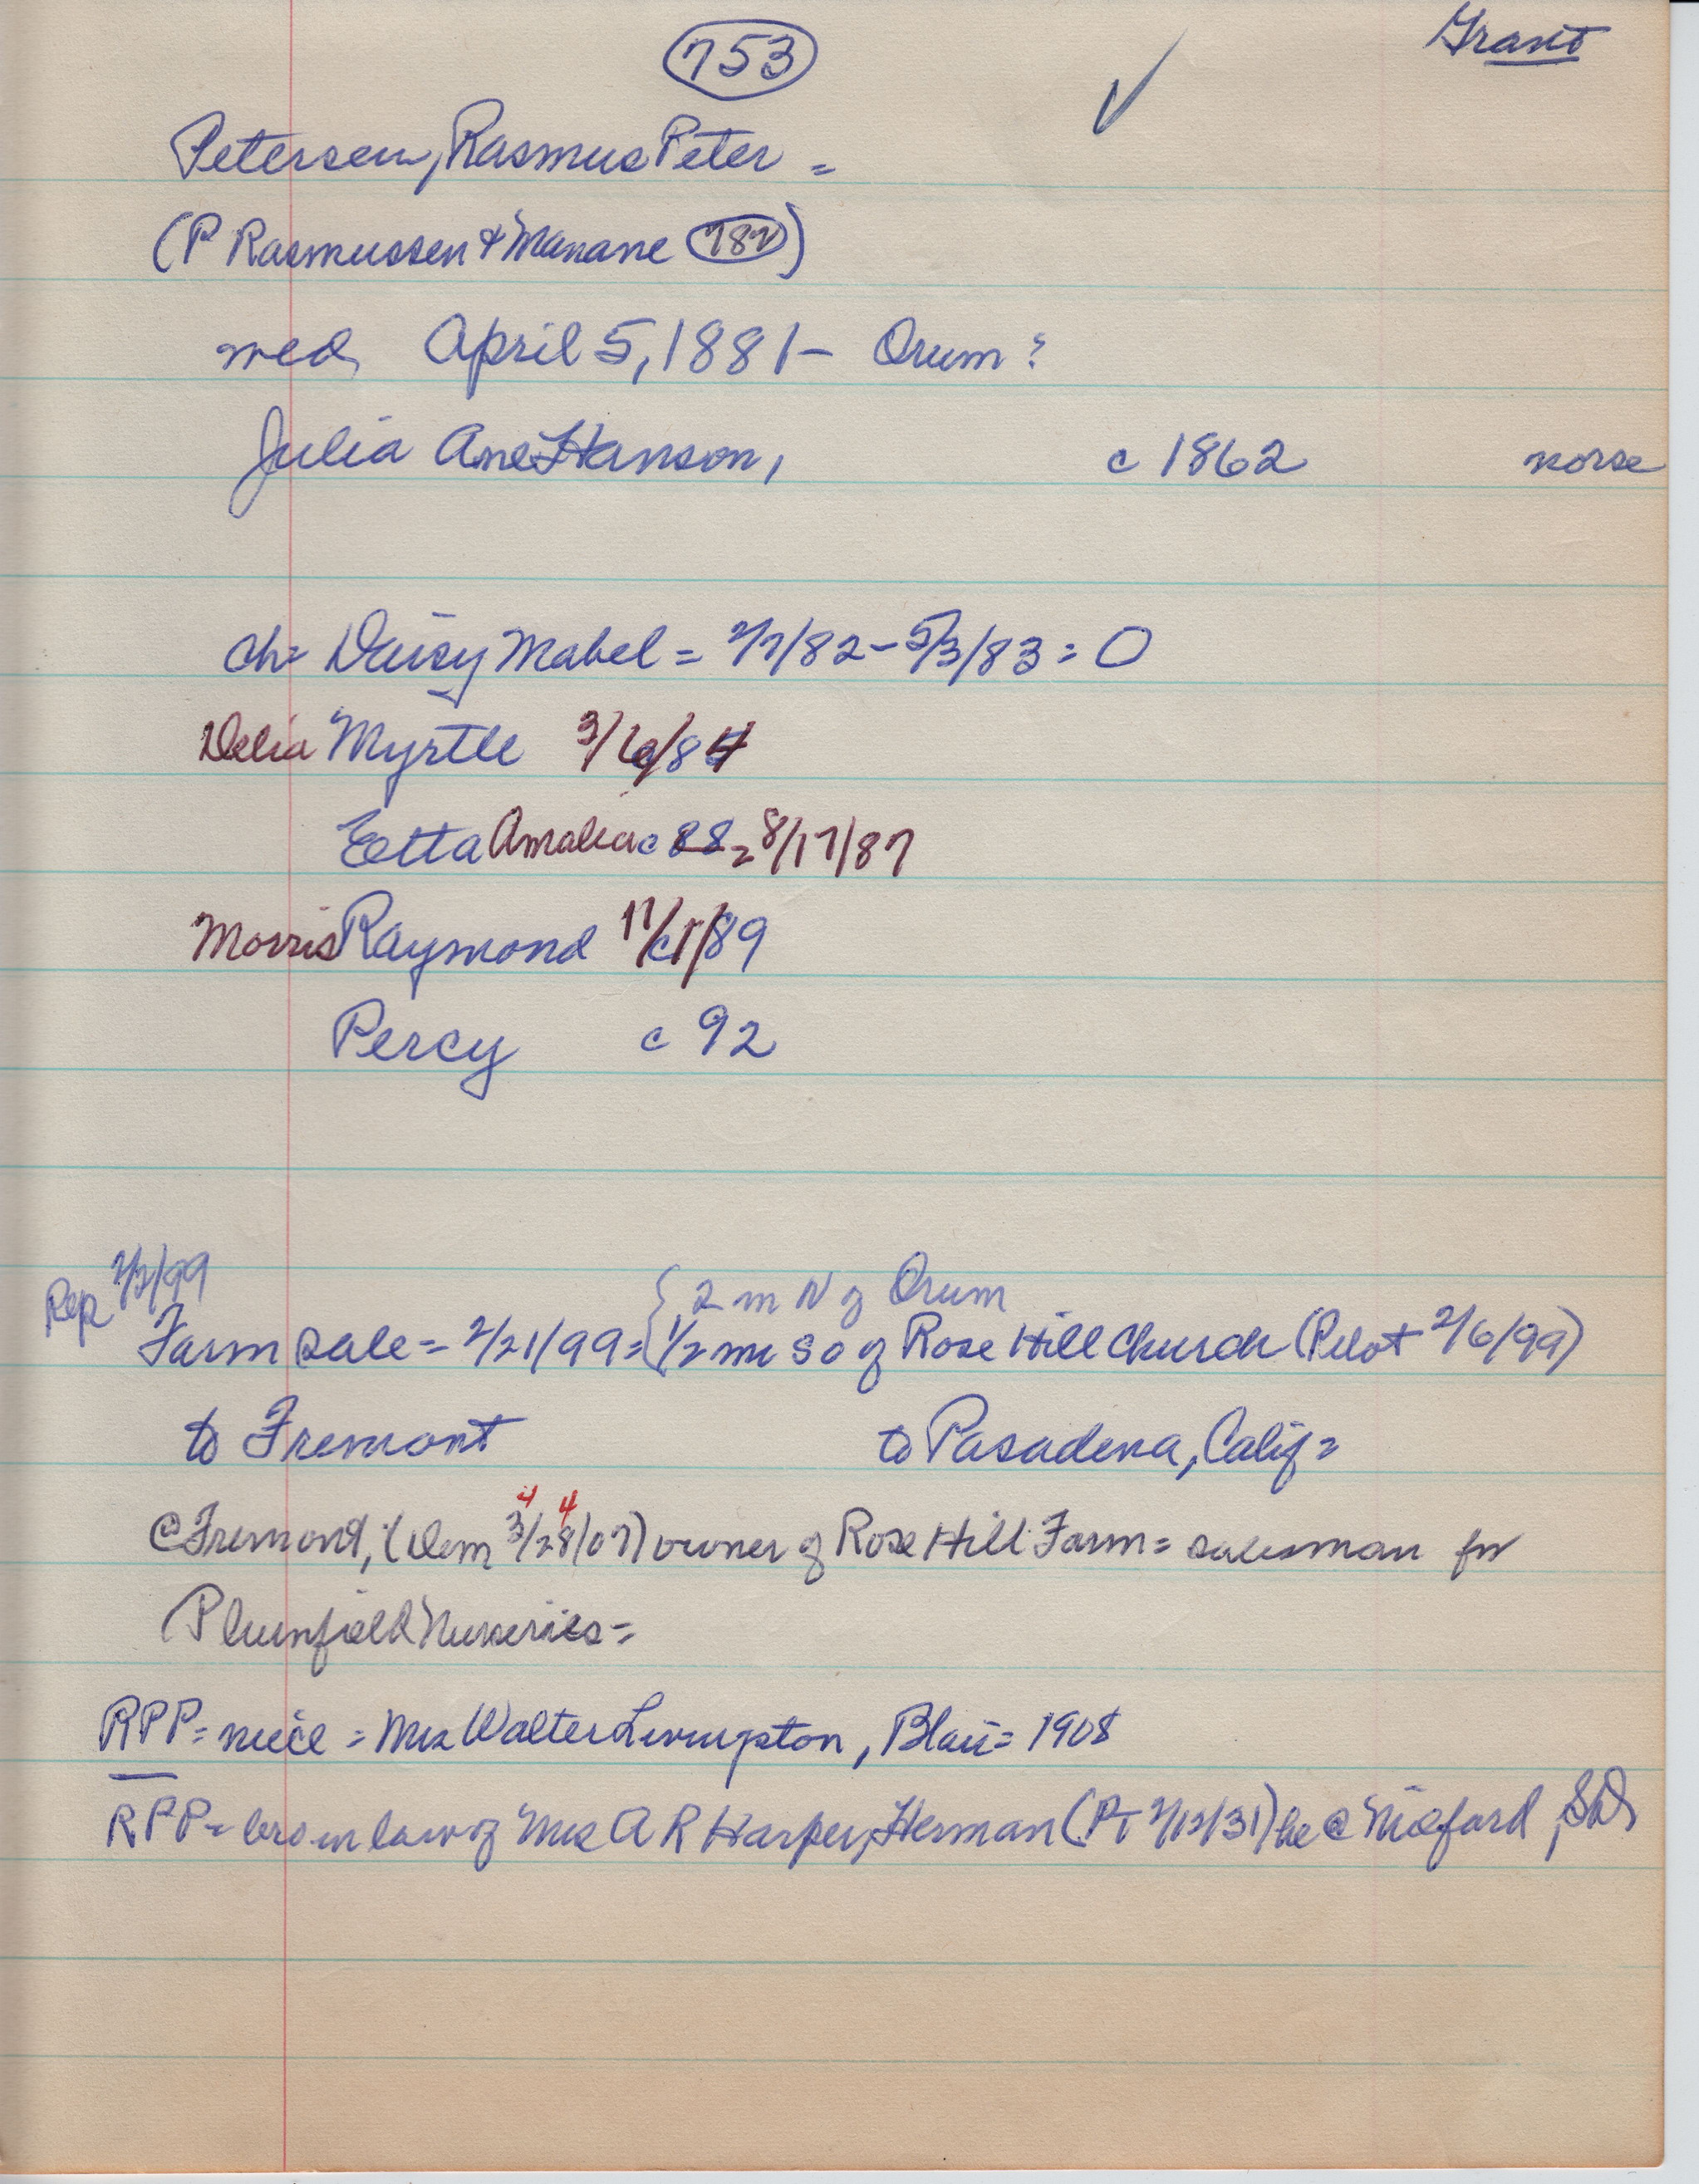 753
Grant
✓
Petersen, Rasmus Peter =
(P Rasmussen & Manane 782)
med April 5, 1881 - Orum?
Julia Ane Hanson, c 1862 norse
ch = Daisy Mabel = 2/7/82 - 5/3/83 = O
Delia Myrtle 3/6/84
Etta Amalia c 88 = 8/17/87
Morris Raymond 11/1/89
Percy c 92
Rep 2/2/99
{ 2 m N of Orum
Farm sale = 2/21/99 = { 1/2 mi so of Rose Hill Church (Pilot 2/6/99)
to Fremont to Pasadena, Calif =
4 4
@ Fremont, (Dem 3/28/07) owner of Rose Hill Farm = salesman for
Plumfield Nurseries =
RPP = neice = Mrs Walter Livingston, Blair = 1908
RPP = bro in law of Mrs A R Harper, Herman (PT 2/12/31) he @ , SD